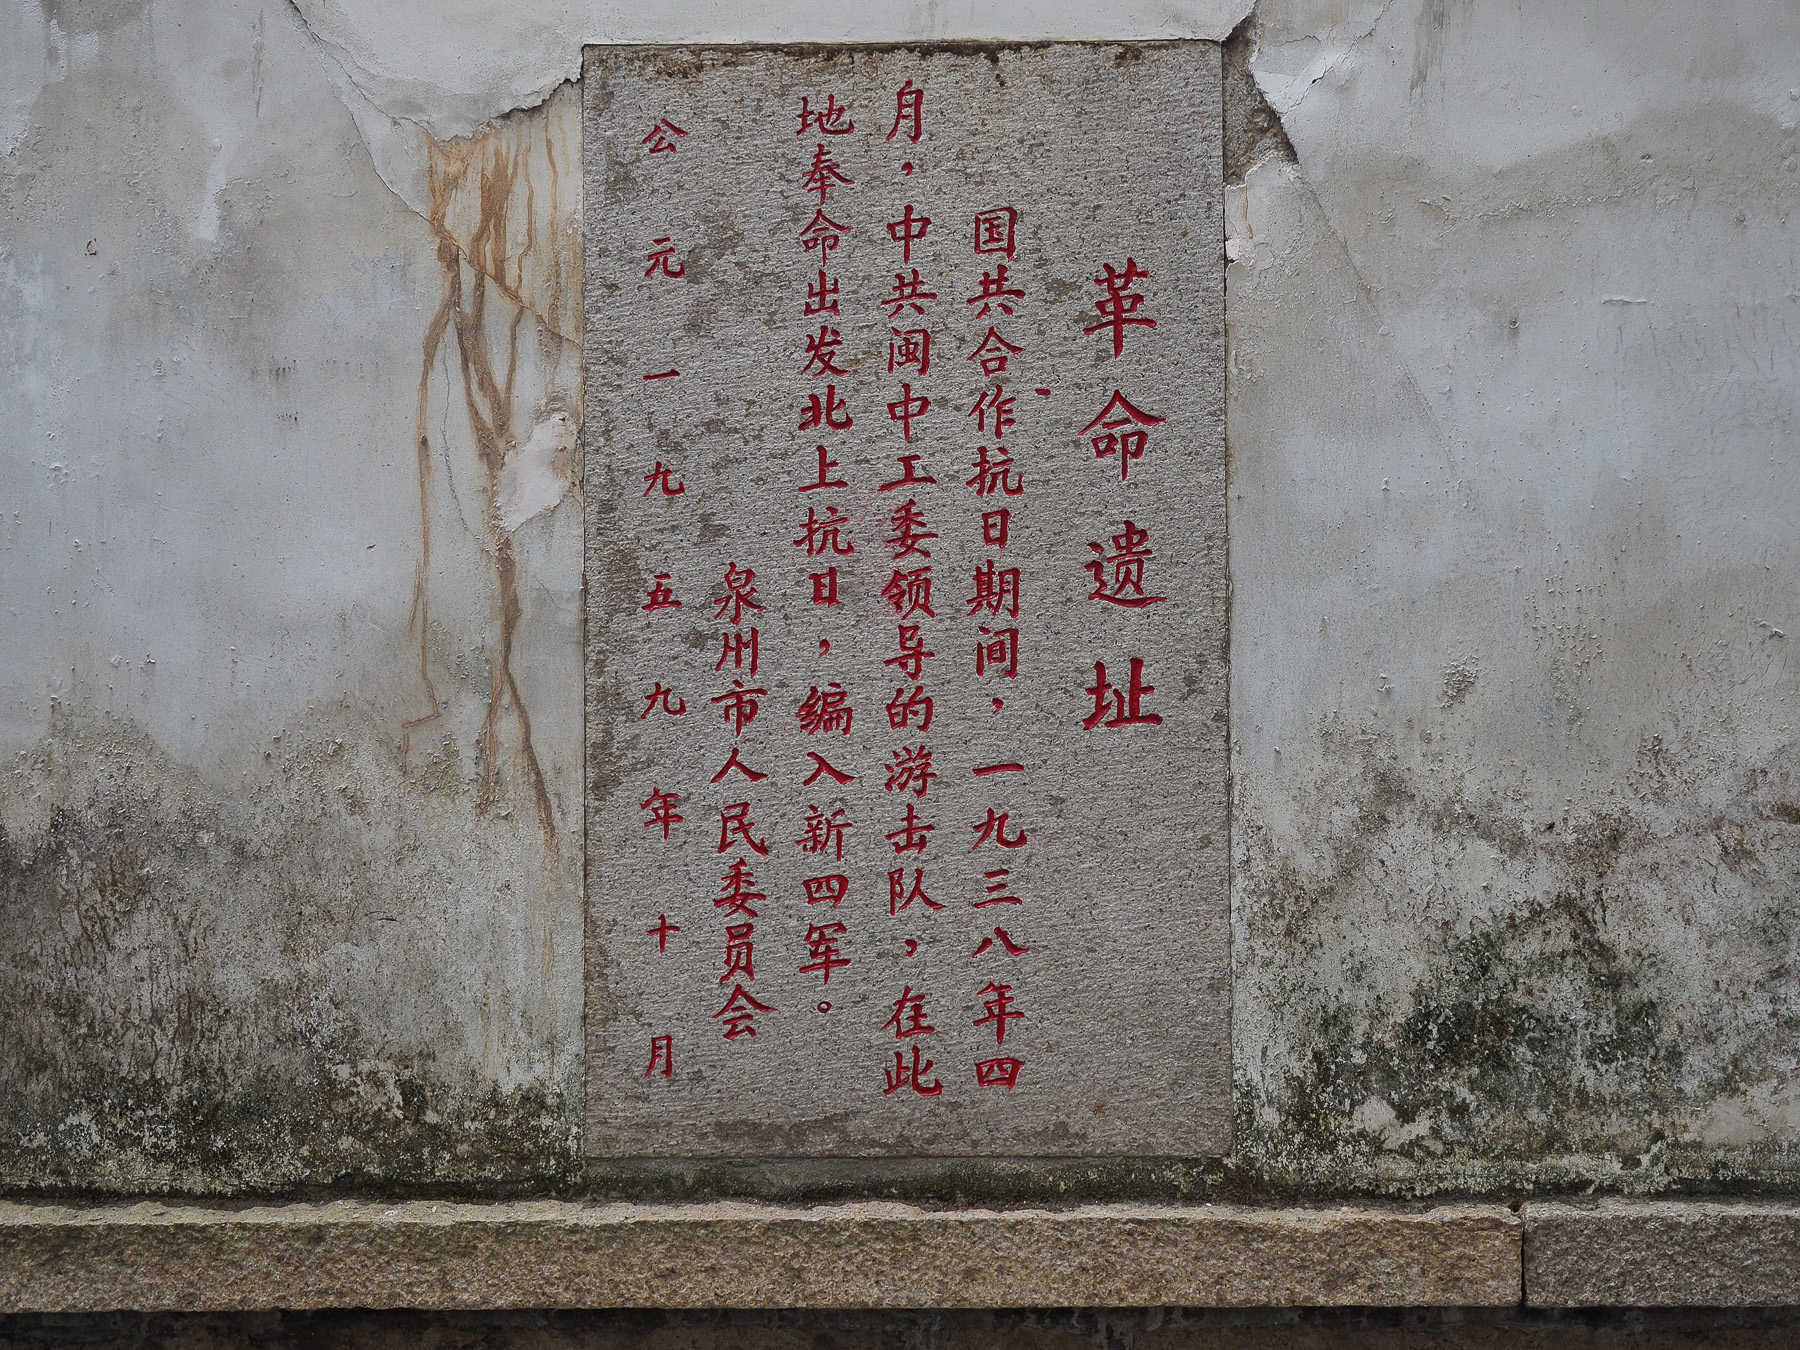 革命遗址
国共合作抗日期间，一九三八年四
月，中共闽中工委领导的游击队，在此
地奉命出发北上抗日，编入新四军。
泉州市人民委员会
公元一九五九年十月